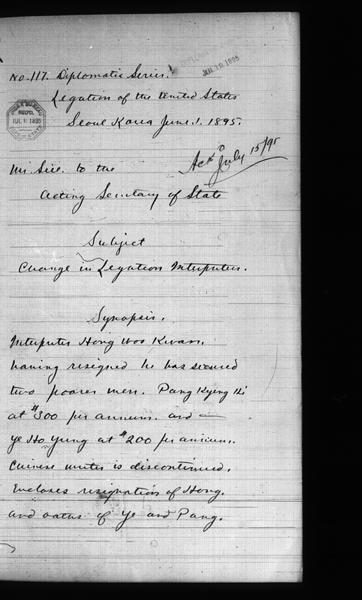 No. 117. Diplomatic Series.
JUL 10 1895
Legation of the United States
Seoul Korea June 1. 1895.
Ack'd July 15/95
Mr. Sill to the
Acting Secretary of State
Subject
Change in Legation Interpreters.
Synopsis.
Interpreter Hong Woo Kwan,
having resigned he has secured
two poorer men. Pang Kyeng Hi
at $300 per annum. and
Ye Ho Yung at $200 per annum.
Chinese writer is discontinued.
Encloses resignation of Hong.
and oaths of Ye and Pang.